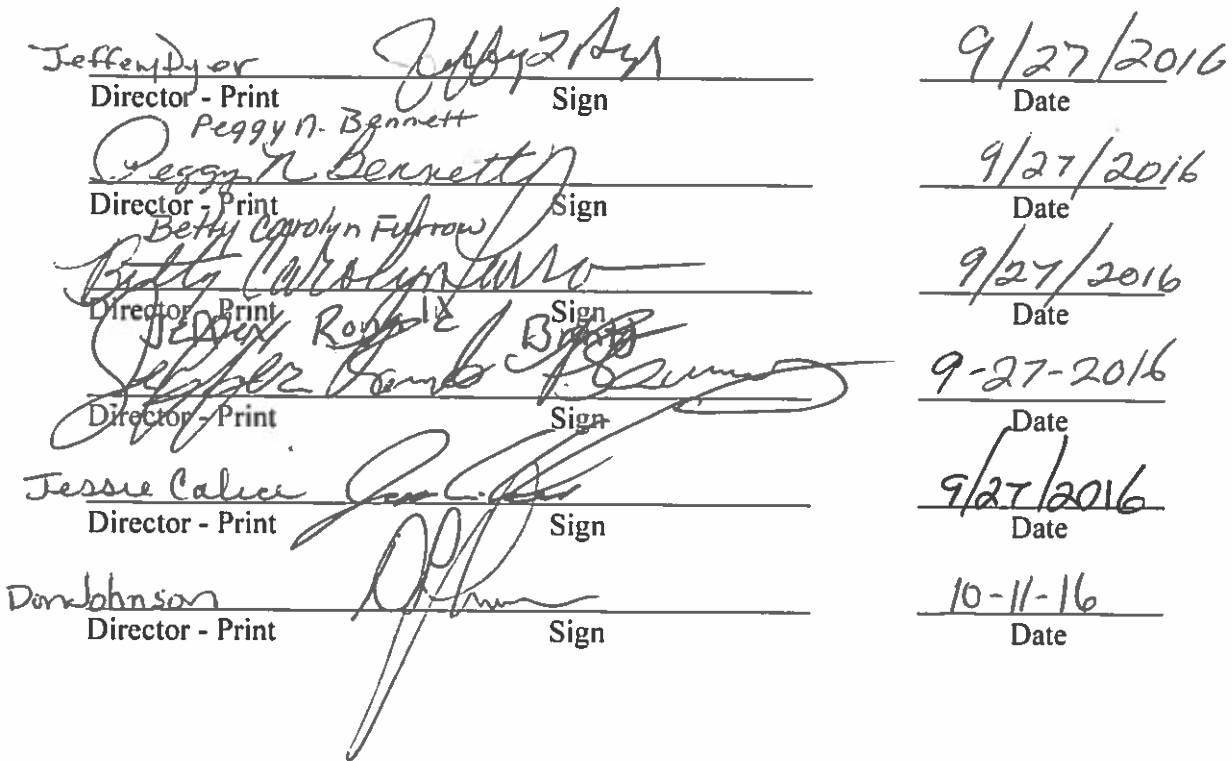 Jeffery Dyer Jeffy L Dyer 9/27/2016
Director - Print Sign Date
Peggy N. Bennett
Peggy N Bennett 9/27/2016
Director - Print Sign Date
Betty Carolyn Furrow
Betty Carolyn Furrow 9/27/2016
Director - Print Sign Date
Ronnie
9-27-2016
Director - Print Sign Date
Jessie 9/27/2016
Director - Print Sign Date
Don Johnson 10-11-16
Director - Print Sign Date